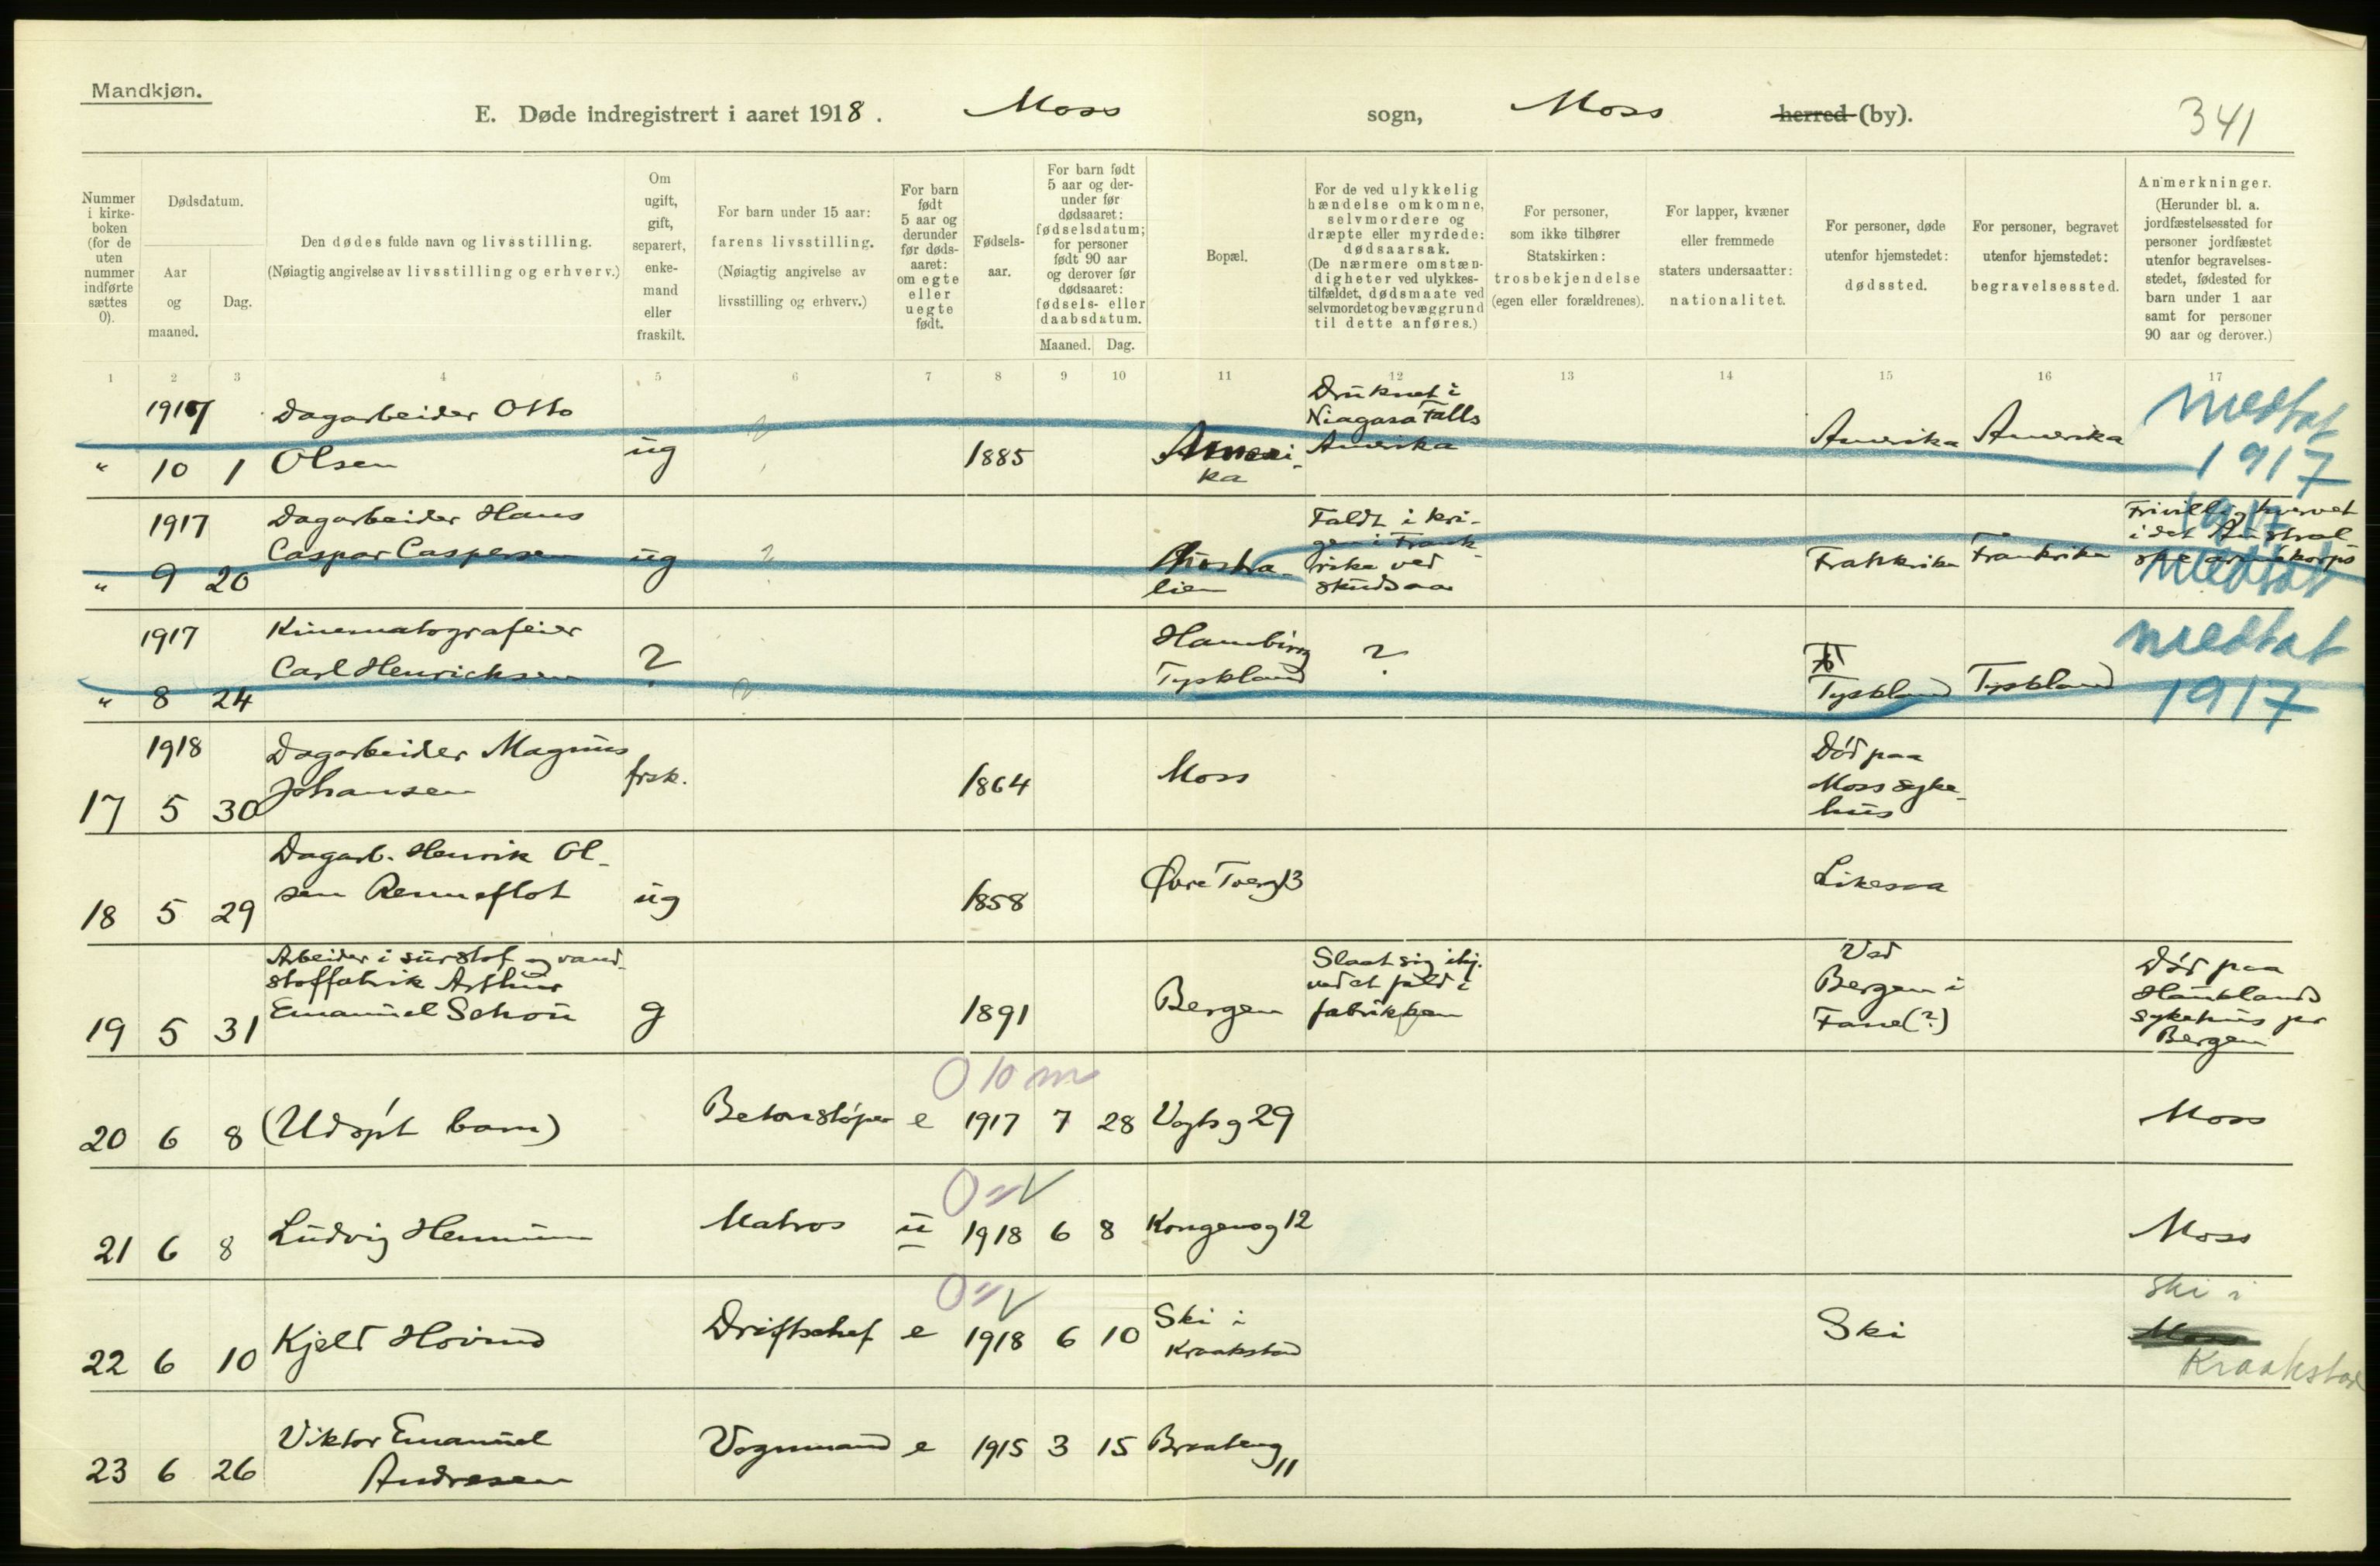 Mandkjøn.
E. Døde indregistrert i aaret 1918. Moss sogn, Moss herred (by). 341
Nummer i kirke-boken (for de uten nummer indførte sættes 0).
Dødsdatum.
Aar og maaned.
Dag.
Den dødes fulde navn og livsstilling.
(Nøiagtig angivelse av livsstilling og erhverv.)
Om ugift, gift, separert, enke-mand eller fraskilt.
For barn under 15 aar: farens livsstilling. (Nøiagtig angivelse av livsstilling og erhverv.)
For barn født 5 aar og derunder før døds-aaret: om egte eller uegte født.
Fødsels-aar.
For barn født 5 aar og der-under før dødsaaret: fødselsdatum; for personer født 90 aar og derover før dødsaaret: fødsels- eller daabsdatum.
Maaned. Dag.
Bopæl.
For de ved ulykkelig hændelse omkomne, selvmordere og dræpte eller myrdede: dødsaarsak. (De nærmere omstæn-digheter ved ulykkes-tilfældet, dødsmaate ved selvmordet og bevæggrund til dette anføres.)
For personer, som ikke tilhører Statskirken: trosbekjendelse (egen eller forældrenes).
For lapper, kvæner eller fremmede staters undersaatter: nationalitet.
For personer, døde utenfor hjemstedet: dødssted.
For personer, begravet utenfor hjemstedet: begravelsessted.
Anmerkninger. (Herunder bl. a. jordfæstelsessted for personer jordfæstet utenfor begravelses-stedet, fødested for barn under 1 aar samt for personer 90 aar og derover.)
1 2 3 4 5 6 7 8 9 10 11 12 13 14 15 16 17
1917 Dagarbeider Otto Druknet i Niagara Falls medtat
" 10 1 Olsen ug ? 1885 Ameri-ka Amerika Amerika Amerika 1917
1917 Dagarbeider Hans Faldt i kri- Frivillig hvervet
Caspar Caspersen ug ? gen i Frank- i det Austral-
" 9 20 Austra-lien rike ved skudsaar Frankrike Frankrike ske armékorps
1917 medtat
1917 Kinematografeier Hamburg medtat
Carl Henrichsen ? ? Tyskland ?
" 8 24 Tyskland Tyskland 1917
1918 Dagarbeider Magnus Død paa
Johansen frsk. 1864 Moss Moss syke-
17 5 30 hus
Dagarb. Henrik Ol-
sen Renneflot ug 1858 Øvre Tverg 13
18 5 29 Likesaa
Arbeider i surstof og vand- Slaat sig ihj. Ved Død paa
stoffabrik Arthur ved et fald i Bergen i Haukelands
19 5 31 Emanuel Schou g 1891 Bergen fabrikken Fane (?) sykehus pr
Bergen
0 10 m
20 6 8 (Udøpt barn) Betonstøper e 1917 7 28 Vogts g 29 Moss
0 " V
21 6 8 Ludvig Hennum Matros u 1918 6 8 Kongensg 12 Moss
0 " V Ski i
22 6 10 Kjeld Hovind Driftschef e 1918 6 10 Ski i Kraakstad Ski Moss
Kraakstad
Viktor Emanuel
23 6 26 Andresen Vognmand e 1915 3 15 Braateng 11